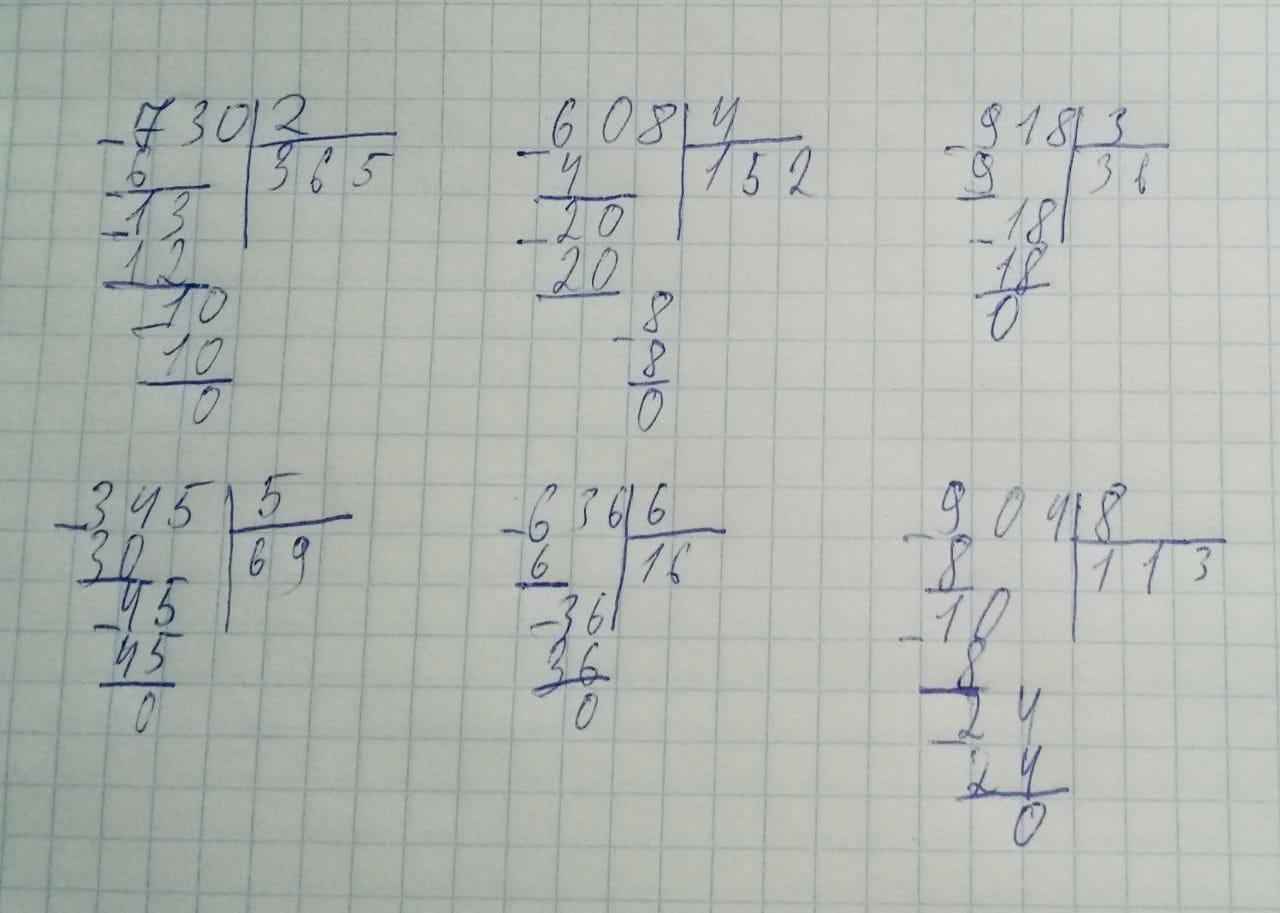 -730|2 -608|4 -918|3
6 365 4 152 9 36
-13 -20 -18
12 20 18
-10 -8 0
10 8
0 0
-345|5 -636|6 -904|8
30 69 6 16 8 113
-45 -36 -10
45 36 8
0 0 -24
24
0